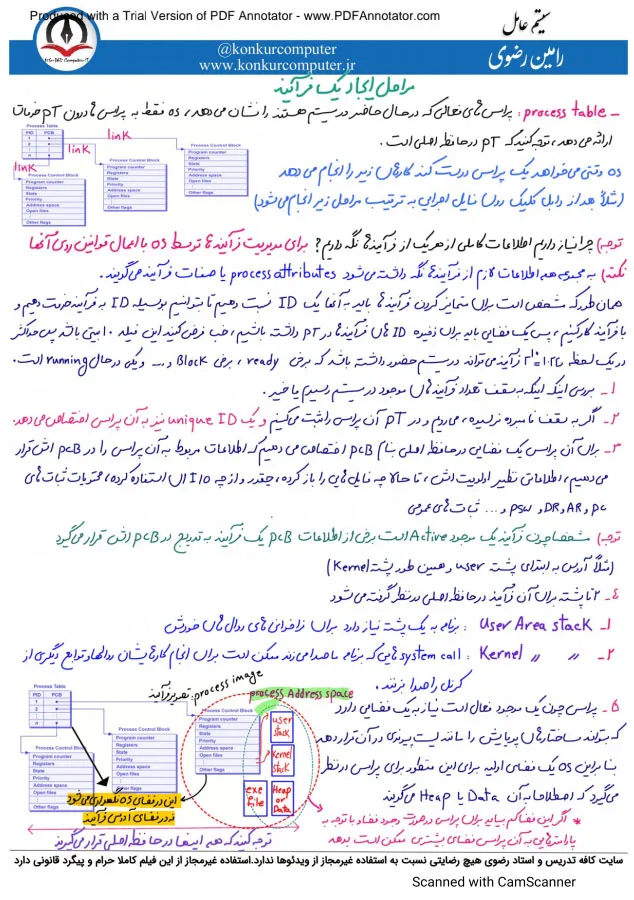 Produced with a Trial Version of PDF Annotator - www.PDFAnnotator.com
سیستم عامل
رامین رضوی
@konkurcomputer
www.konkurcomputer.ir
مراحل ایجاد یک فرآیند
- process table : پراس های فعالی که در حال حاضر در سیستم هستند را نشان می دهد، os فقط به پراس های درون PT خدمات
ارائه می دهد، توجه کنید که PT در حافظه اصلی است.
os وقتی می خواهد یک پراس درست کند کارهای زیر را انجام می دهد
(مثلاً بعد از دابل کلیک روی فایل اجرایی به ترتیب مراحل زیر انجام می شود)
Process Table
PID PCB
1
2
n
link
link
link
Process Control Block
Program counter
Registers
State
Priority
Address space
Open files
Other flags
Process Control Block
Program counter
Registers
State
Priority
Address space
Open files
Other flags
Process Control Block
Program counter
Registers
State
Priority
Address space
Open files
Other flags
توجه) چرا نیاز داریم اطلاعات کاملی از هر یک از فرآیندها نگه داریم؟ برای مدیریت فرآیندها توسط os با اعمال قوانین روی آنها
نکته) به مجموعه اطلاعات لازم از فرآیندها نگه داشته می شود process attributes یا صفات فرآیند می گویند.
همان طور که مشخص است برای متمایز کردن فرآیندها باید به آنها یک ID نسبت دهیم تا بتوانیم بوسیله ID به فرآیند خدمت دهیم و
با فرآیند کار کنیم، پس یک فضایی باید برای ذخیره ID های فرآیندها در PT داشته باشیم، خب فرض کنید این فیلد ۱۰ بیتی باشد پس حداکثر
در یک لحظه ۲^۱۰=۱۰۲۴ فرآیند می تواند در سیستم حضور داشته باشد که برخی ready ، برخی Block و ... و یکی در حال running است.
۱- بررسی اینکه اینکه به سقف تعداد فرآیندهای موجود در سیستم رسیدیم یا خیر.
۲- اگر به سقف نامبرده نرسیده، می رویم و در PT آن پراس را ثبت می کنیم و یک unique ID نیز به آن پراس اختصاص می دهد.
۳- برای آن پراس یک فضایی در حافظه اصلی بنام PCB اختصاص می دهیم که اطلاعات مربوط به آن پراس را در PCB اش قرار
می دهیم، اطلاعاتی نظیر اولویت اش، تا حالا چه فایل هایی را باز کرده، چقدر و از چه I/O ای استفاده کرده، محتویات ثبات های
PC و AR و DR و PSW و ... ثبات های عمومی
توجه) مشخصاً چون فرآیند یک موجود Active است برخی از اطلاعات PCB یک فرآیند به تدریج در PCB اش قرار می گیرد
(مثلاً آدرس به ابتدای پشته user و همین طور پشته Kernel)
۴- ۲ تا پشته برای آن فرآیند در حافظه اصلی در نظر گرفته می شود
۱- User Area stack : برنامه به یک پشته نیاز دارد برای فراخوانی های روال های خودش
۲- " " Kernel : system call هایی که برنامه ما صدا می زند ممکن است برای انجام کارهایشان روالها و توابع دیگری از
کرنل را صدا بزنند.
۵- پراس چون یک موجود فعال است نیاز به یک فضایی دارد
که بتواند ساختارهای پویایش را مانند لیست پیوندی در آن قرار دهد
بنابراین os یک فضای اولیه برای این منظور برای پراس در نظر
می گیرد که اصطلاحاً به آن Data یا Heap می گویند
* اگر این فضا کم بیاید برای پراس در صورت وجود فضا و با توجه به
پارامترهایی به آن پراس فضای بیشتری ممکن است بدهد
Process Table
PID PCB
1
2
n
Process Control Block
Program counter
Registers
State
Priority
Address space
Open files
Other flags
Process Control Block
Program counter
Registers
State
Priority
Address space
Open files
Other flags
process image : تصویر فرآیند
process Address space
Process Control Block
Program counter
Registers
State
Priority
Address space
Open files
Other flags
user stack
Kernel stack
exe file
Heap or Data
این در فضای os نگهداری می شود
نه در فضای آدرس فرآیند
توجه کنید که همه اینها در حافظه اصلی قرار می گیرند
سایت کافه تدریس و استاد رضوی هیچ رضایتی نسبت به استفاده غیرمجاز از ویدئوها ندارد.استفاده غیرمجاز از این فیلم کاملا حرام و پیگرد قانونی دارد
Scanned with CamScanner